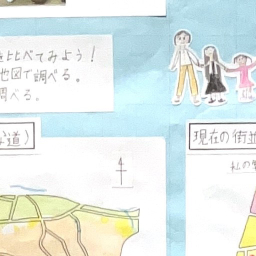 比べてみよう！
地図で調べる。
調べる。
道）
現在の街並
私の